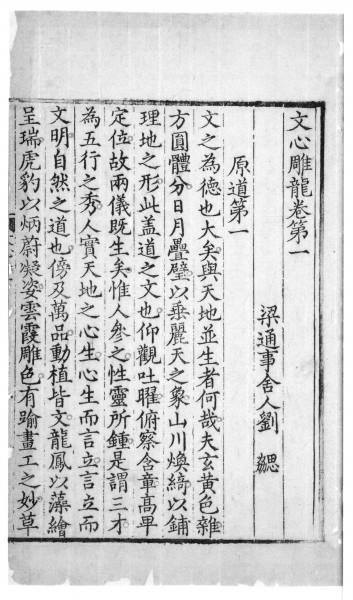 文心雕龍卷第一
梁通事舍人劉勰
原道第一
文之為德也大矣與天地並生者何哉夫玄黃色雜
方圓體分日月疊璧以垂麗天之象山川煥綺以鋪
理地之形此盖道之文也仰觀吐曜俯察含章高卑
定位故兩儀既生矣惟人參之性靈所鍾是謂三才
為五行之秀人實天地之心生心生而言立言立而
文明自然之道也傍及萬品動植皆文龍鳳以藻繪
呈瑞虎豹以炳蔚凝姿雲霞雕色有踰畫工之妙草